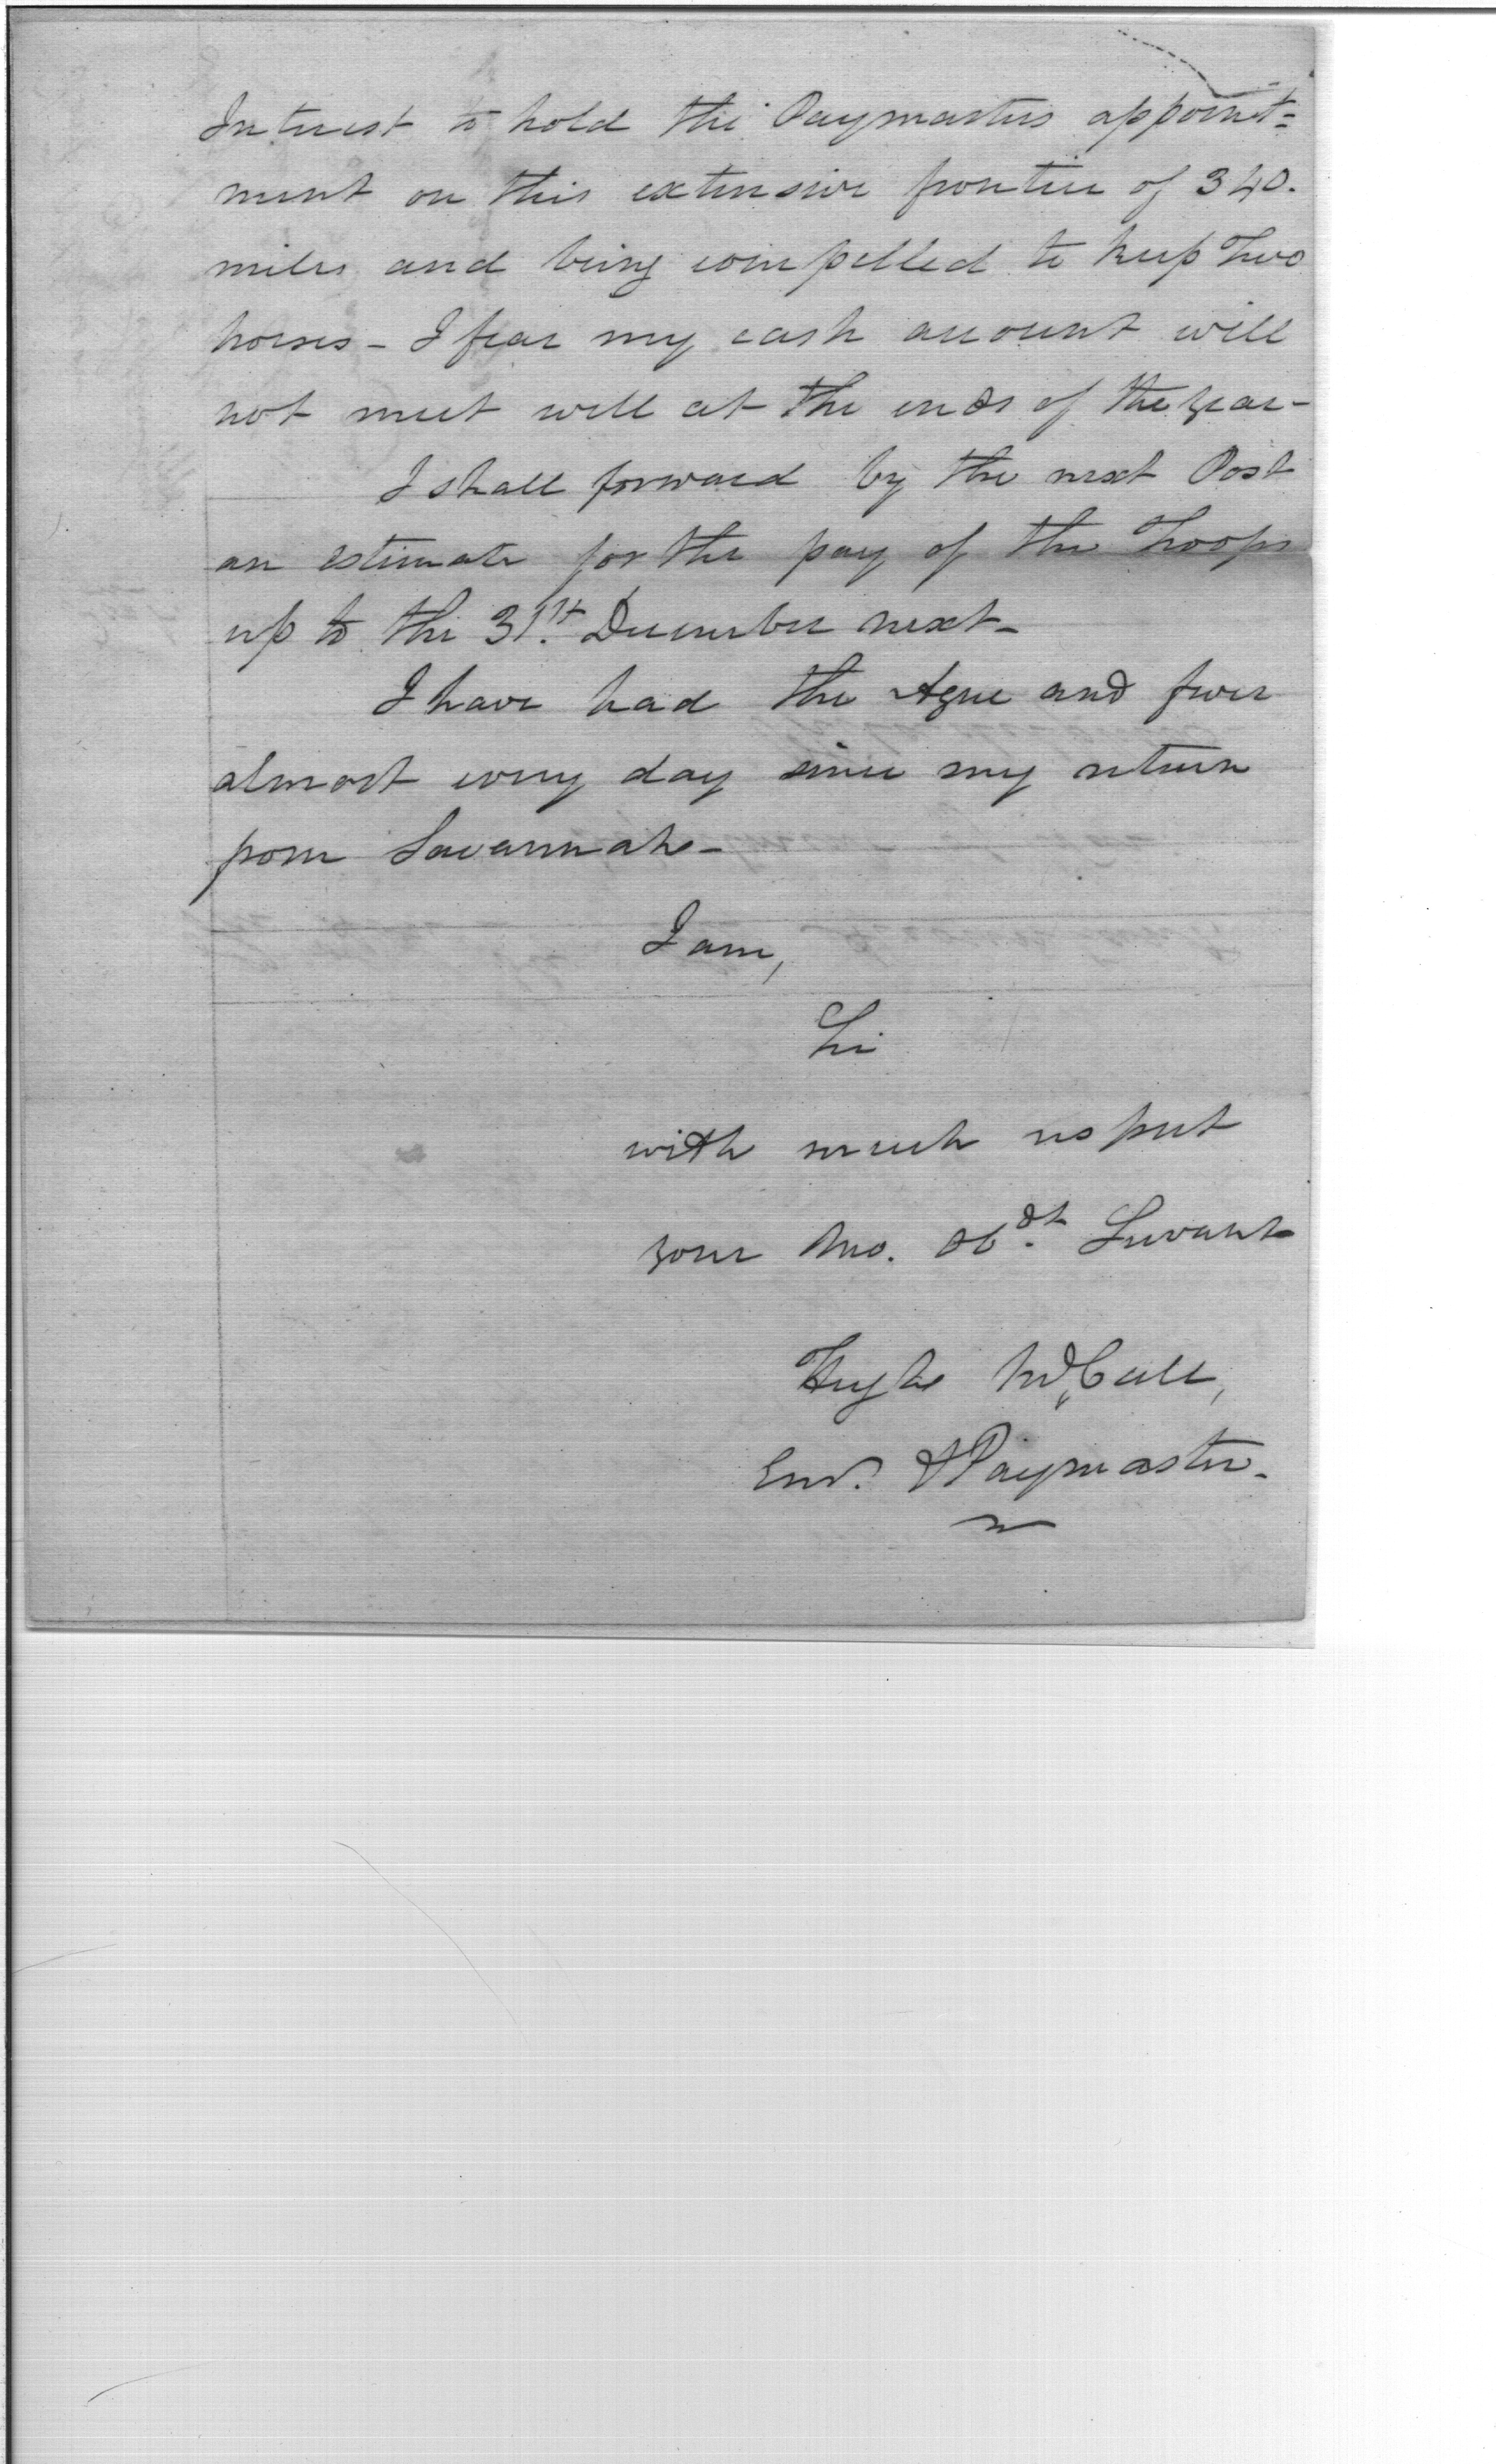 Interest to hold the Paymasters appoint=
ment on this extensive frontier of 340.
miles and being compelled to keep Two
horses - I fear my cash account will
not meet well at the ends of the year -
I shall forward by the next Post
an estimate for the pay of the Troops
up to the 31st. December next -
I have had the Ague and fever
almost every day since my return
from Savannah -
I am,
Sir
with much respect
your Mo. Obdt. Servant
Hugh McCall,
Ens. & Paymaster -